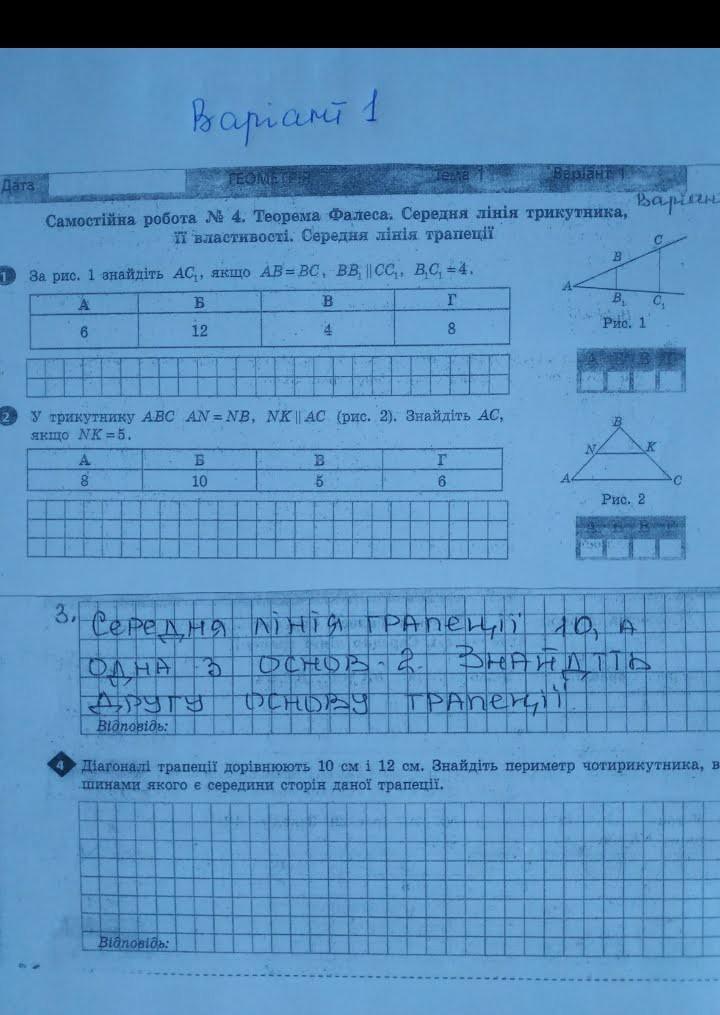 Варіант 1
Дата ГЕОМЕТРІЯ Тема 1 Варіант 1
Самостійна робота № 4. Теорема Фалеса. Середня лінія трикутника,
її властивості. Середня лінія трапеції
1 За рис. 1 знайдіть AC₁, якщо AB = BC, BB₁ || CC₁, B₁C₁ = 4.
А Б В Г
6 12 4 8
A B C B₁ C₁
Рис. 1
А Б В Г
2 У трикутнику ABC AN = NB, NK || AC (рис. 2). Знайдіть AC,
якщо NK = 5.
А Б В Г
8 10 5 6
B
N K
A C
Рис. 2
А Б В Г
3. Середня лінія трапеції 10, а
одна з основ - 2. Знайдіть
другу основу трапеції.
Відповідь:
4 Діагоналі трапеції дорівнюють 10 см і 12 см. Знайдіть периметр чотирикутника, в
шинами якого є середини сторін даної трапеції.
Відповідь: